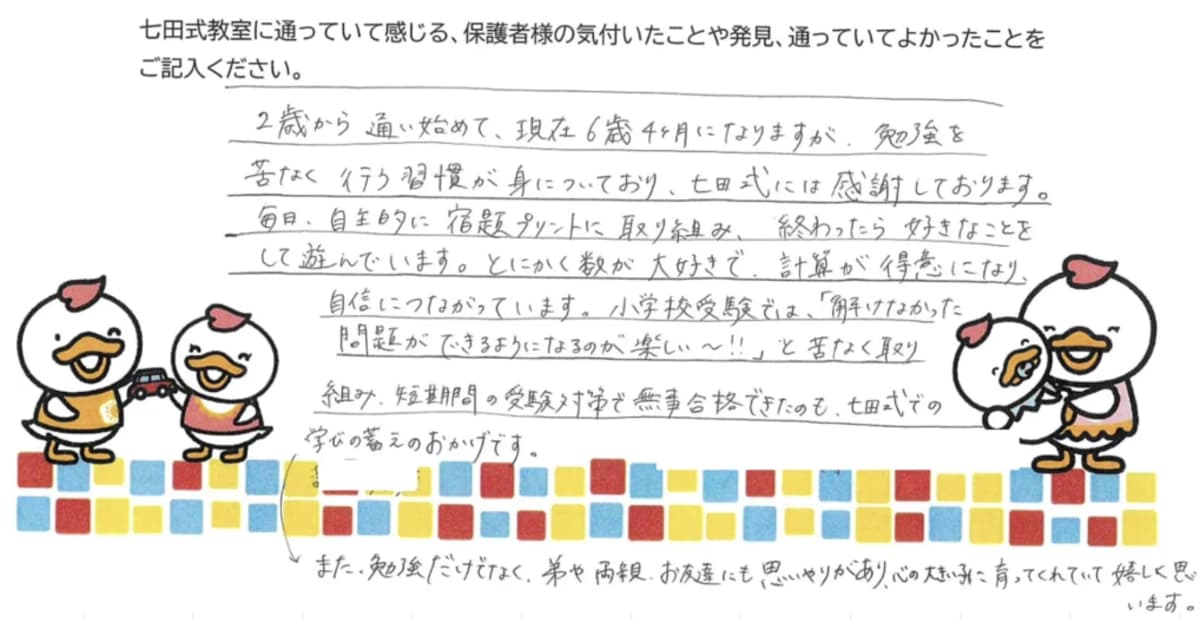 七田式教室に通っていて感じる、保護者様の気付いたことや発見、通っていてよかったことを
ご記入ください。
2歳から通い始めて、現在6歳4ヶ月になりますが、勉強を
苦なく行う習慣が身についており、七田式には感謝しております。
毎日、自主的に宿題プリントに取り組み、終わったら好きなことを
して遊んでいます。とにかく数が大好きで、計算が得意になり、
自信につながっています。小学校受験では、「解けなかった
問題ができるようになるのが楽しい〜!!」と苦なく取り
組み、短期間の受験対策で無事合格できたのも、七田式での
学びの蓄えのおかげです。
また、勉強だけでなく、弟や両親、お友達にも思いやりがあり、心の大きい子に育ってくれていて嬉しく思
います。